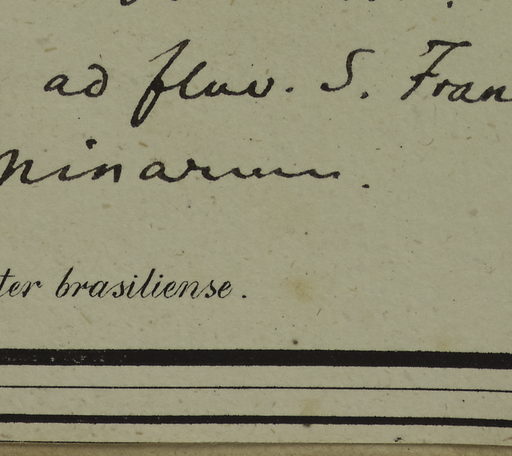 ad fluv. S. Fran
Minarum.
ter brasiliense.